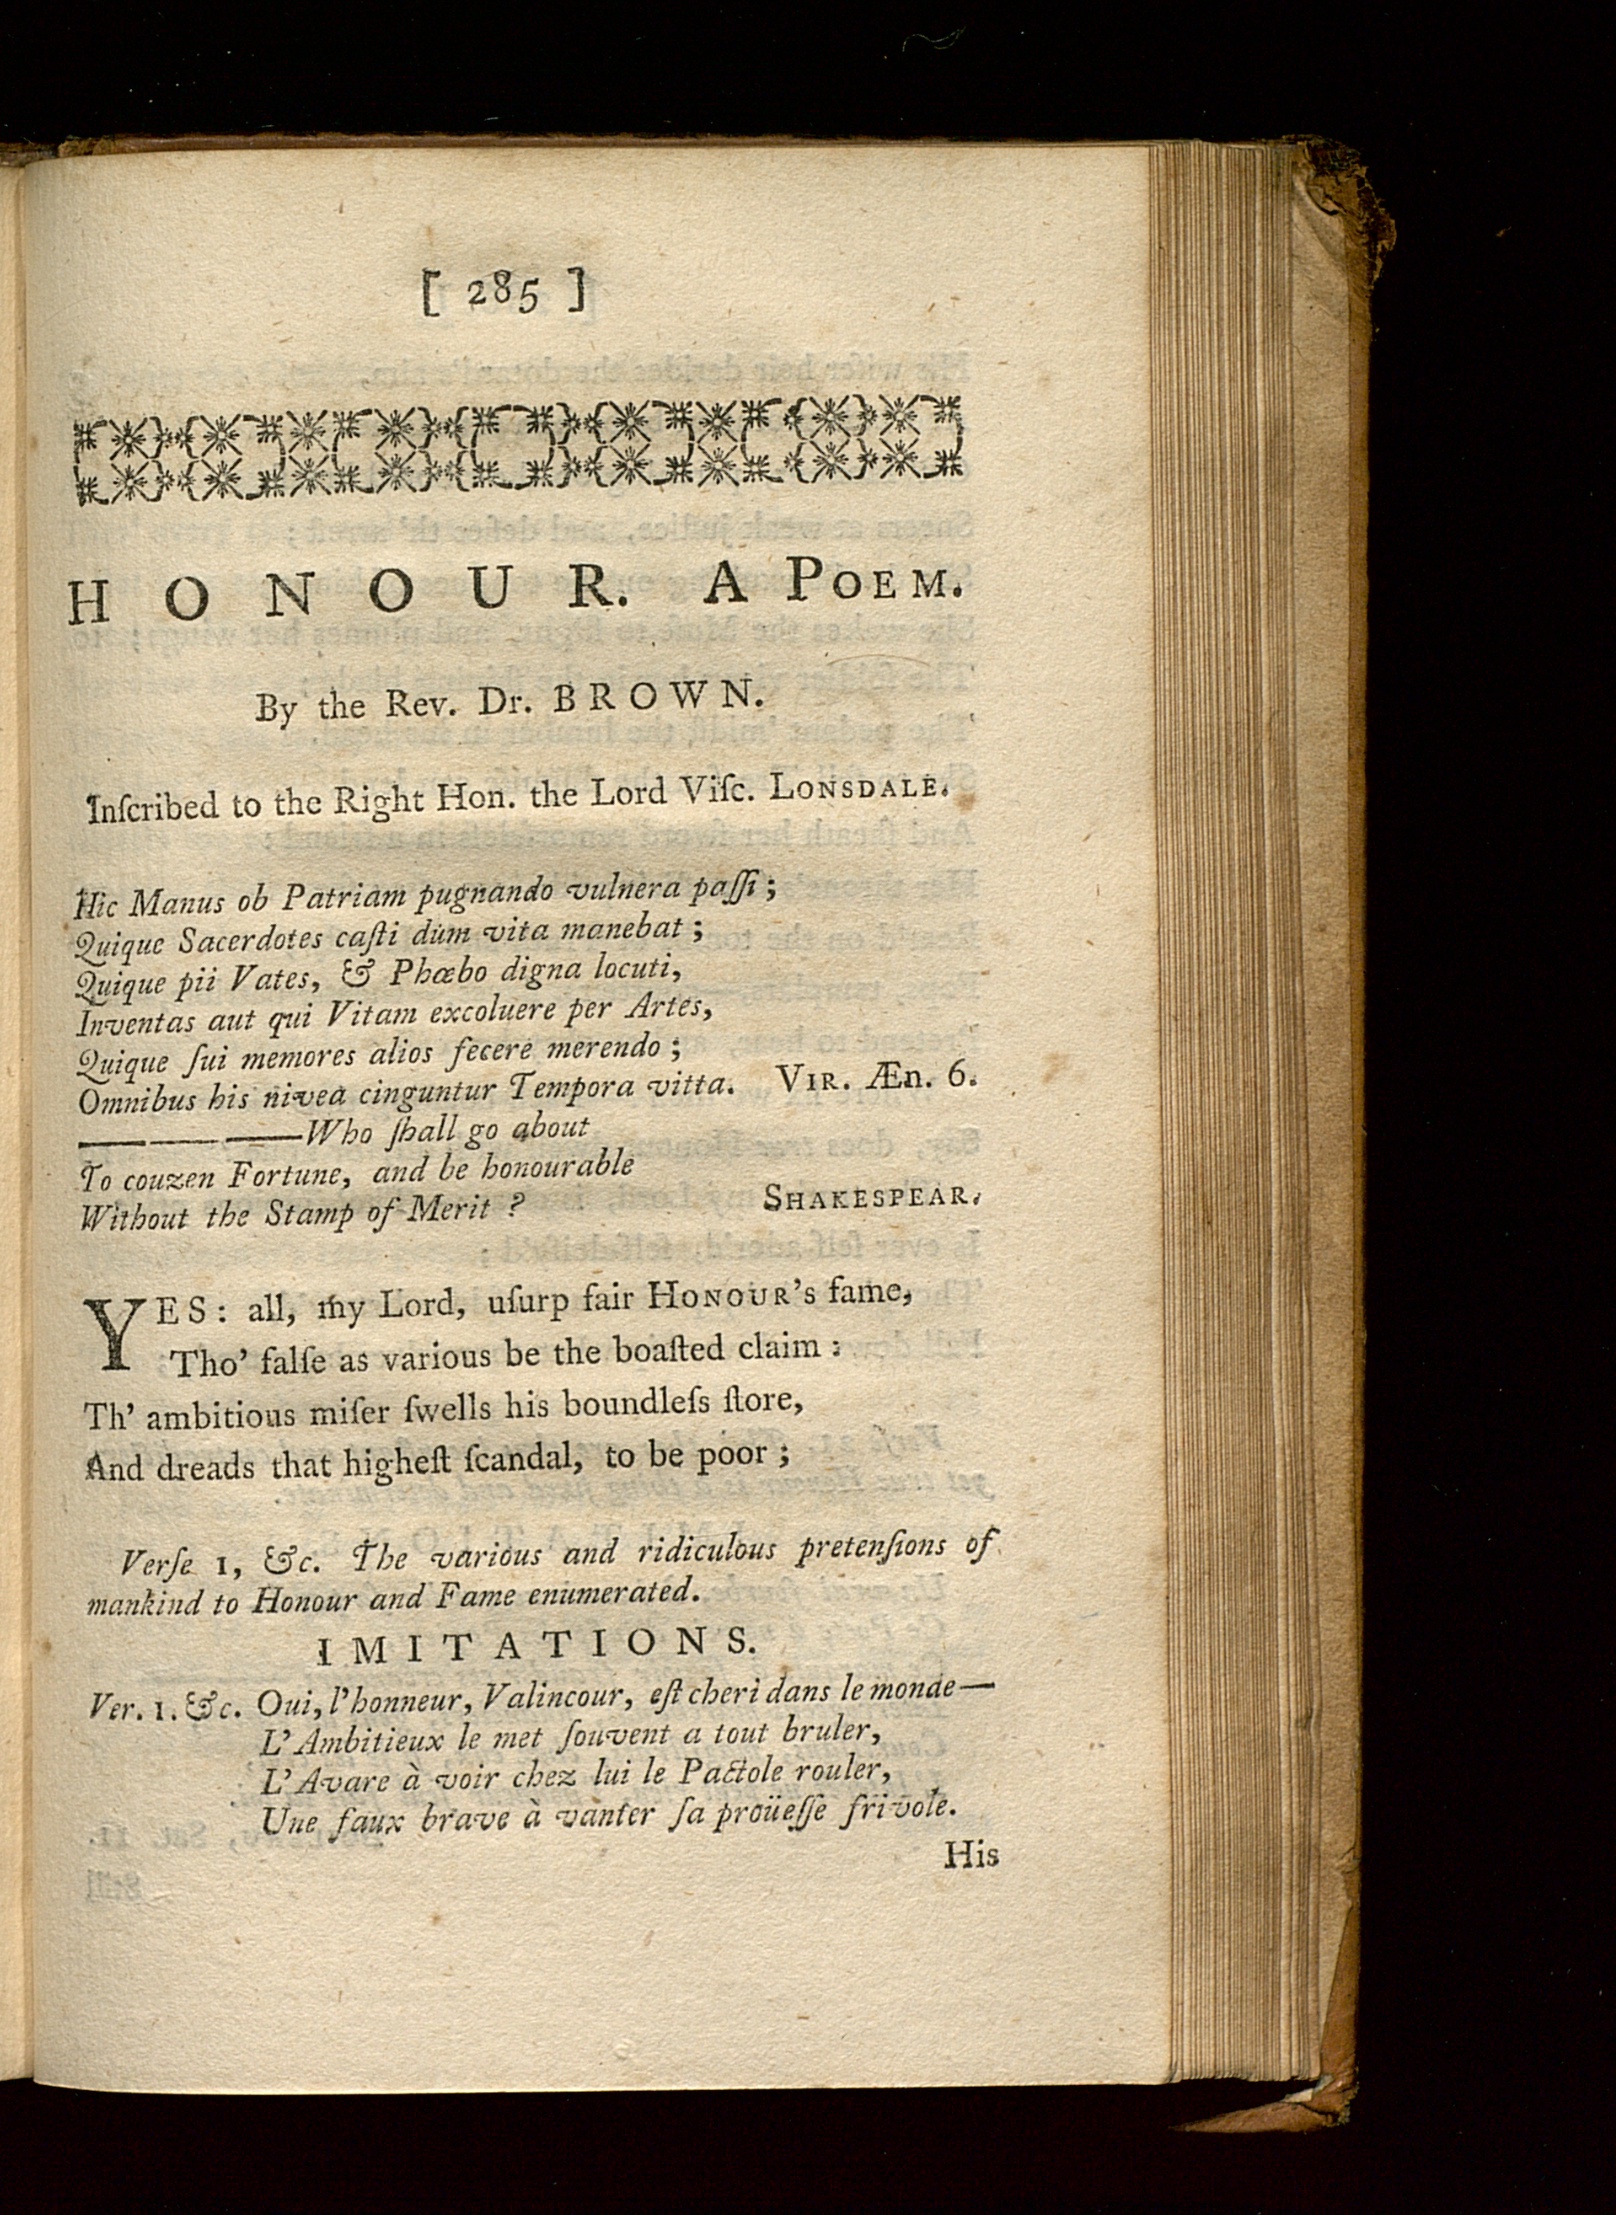 [ 285 ]
HONOUR. A POEM.
By the Rev. Dr. BROWN.
Inſcribed to the Right Hon. the Lord Viſc. LONSDALE.
Hic Manus ob Patriam pugnando vulnera paſſi;
Quique Sacerdotes caſti dum vita manebat;
Quique pii Vates, & Phœbo digna locuti,
Inventas aut qui Vitam excoluere per Artes,
Quique ſui memores alios fecere merendo;
Omnibus his nivea cinguntur Tempora vitta. VIR. Æn. 6.
— — —Who ſhall go about
To couzen Fortune, and be honourable
Without the Stamp of Merit? SHAKESPEAR.
YES: all, my Lord, uſurp fair HONOUR'S fame,
Tho' falſe as various be the boaſted claim:
Th' ambitious miſer ſwells his boundleſs ſtore,
And dreads that higheſt ſcandal, to be poor;
Verſe 1, &c. The various and ridiculous pretenſions of
mankind to Honour and Fame enumerated.
IMITATIONS.
Ver. 1. &c. Oui, l'honneur, Valincour, eſt cheri dans le monde—
L'Ambitieux le met ſouvent a tout bruler,
L'Avare à voir chez lui le Pactole rouler,
Une faux brave à vanter ſa proüeſſe frivole.
His